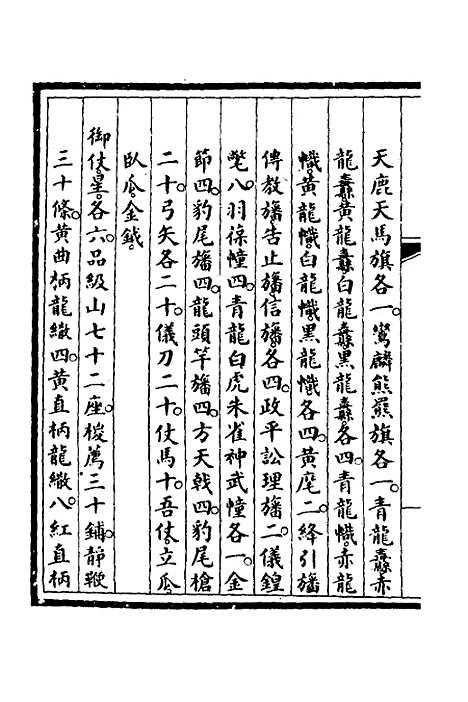 天鹿天馬旗各一。鸞麟熊羆旗各一。青龍纛赤
龍纛黃龍纛白龍纛黑龍纛各四。青龍幟。赤龍
幟。黃龍幟白龍幟。黑龍幟各四。黃麾二。絳引旛
傳教旛。吿止旛。信旛。各四。政平訟理旛二。儀鍠
氅八。羽葆幢四。青龍白虎朱雀神武幢各一。金
節四。豹尾旛四。龍頭竿旛四。方天戟四。豹尾槍
二十。弓矢各二十。儀刀二十。仗馬十。吾仗立瓜。
臥瓜。金鉞。
御仗。星。各六。品級山七十二座。椶薦三十鋪。靜鞭
三十條。黃曲柄龍繖四。黃直柄龍繖八。紅直柄